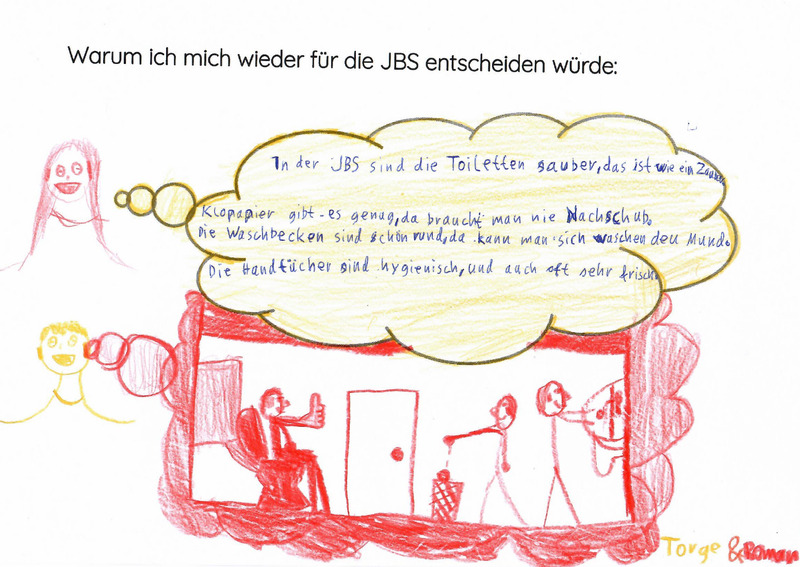 Warum ich mich wieder für die JBS entscheiden würde:
In der JBS sind die Toiletten sauber, das ist wie ein Zauber.
Klopapier gibt es genug, da braucht man nie Nachschub.
Die Waschbecken sind schön rund, da kann man sich waschen den Mund.
Die Handtücher sind hygienisch, und auch oft sehr frisch.
Torge & Roman